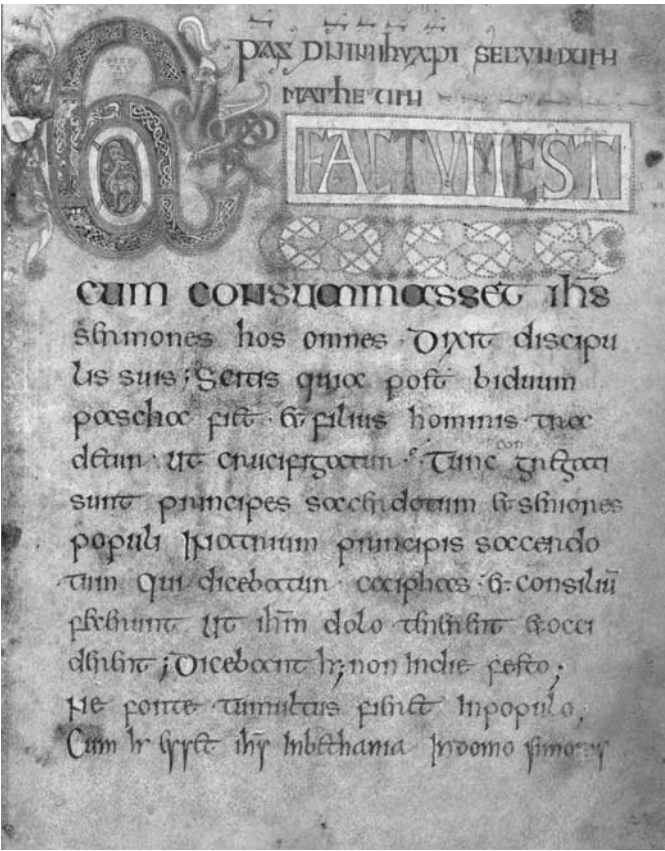 PAX DNI NI IhU XPI SECUNDUM
MATHEUM
Et FACTUM EST
cum consummasset ihs
sermones hos omnes · Dixit discipu
lis suis ; Scitis quia post biduum
pascha fiet · et filius hominis tra
detur · ut crucifigatur · Tunc congregati
sunt principes sacerdotum et seniores
populi In atrium principis sacerdo
tum qui dicebatur · caiphas · et consiliū
fecerunt ut ihm̄ dolo tenerent et occi
derent ; Dicebant hr; non In die festo ;
Ne forte tumultus fieret In populo ;
Cum hr esset ihs In bethania In domo simonis